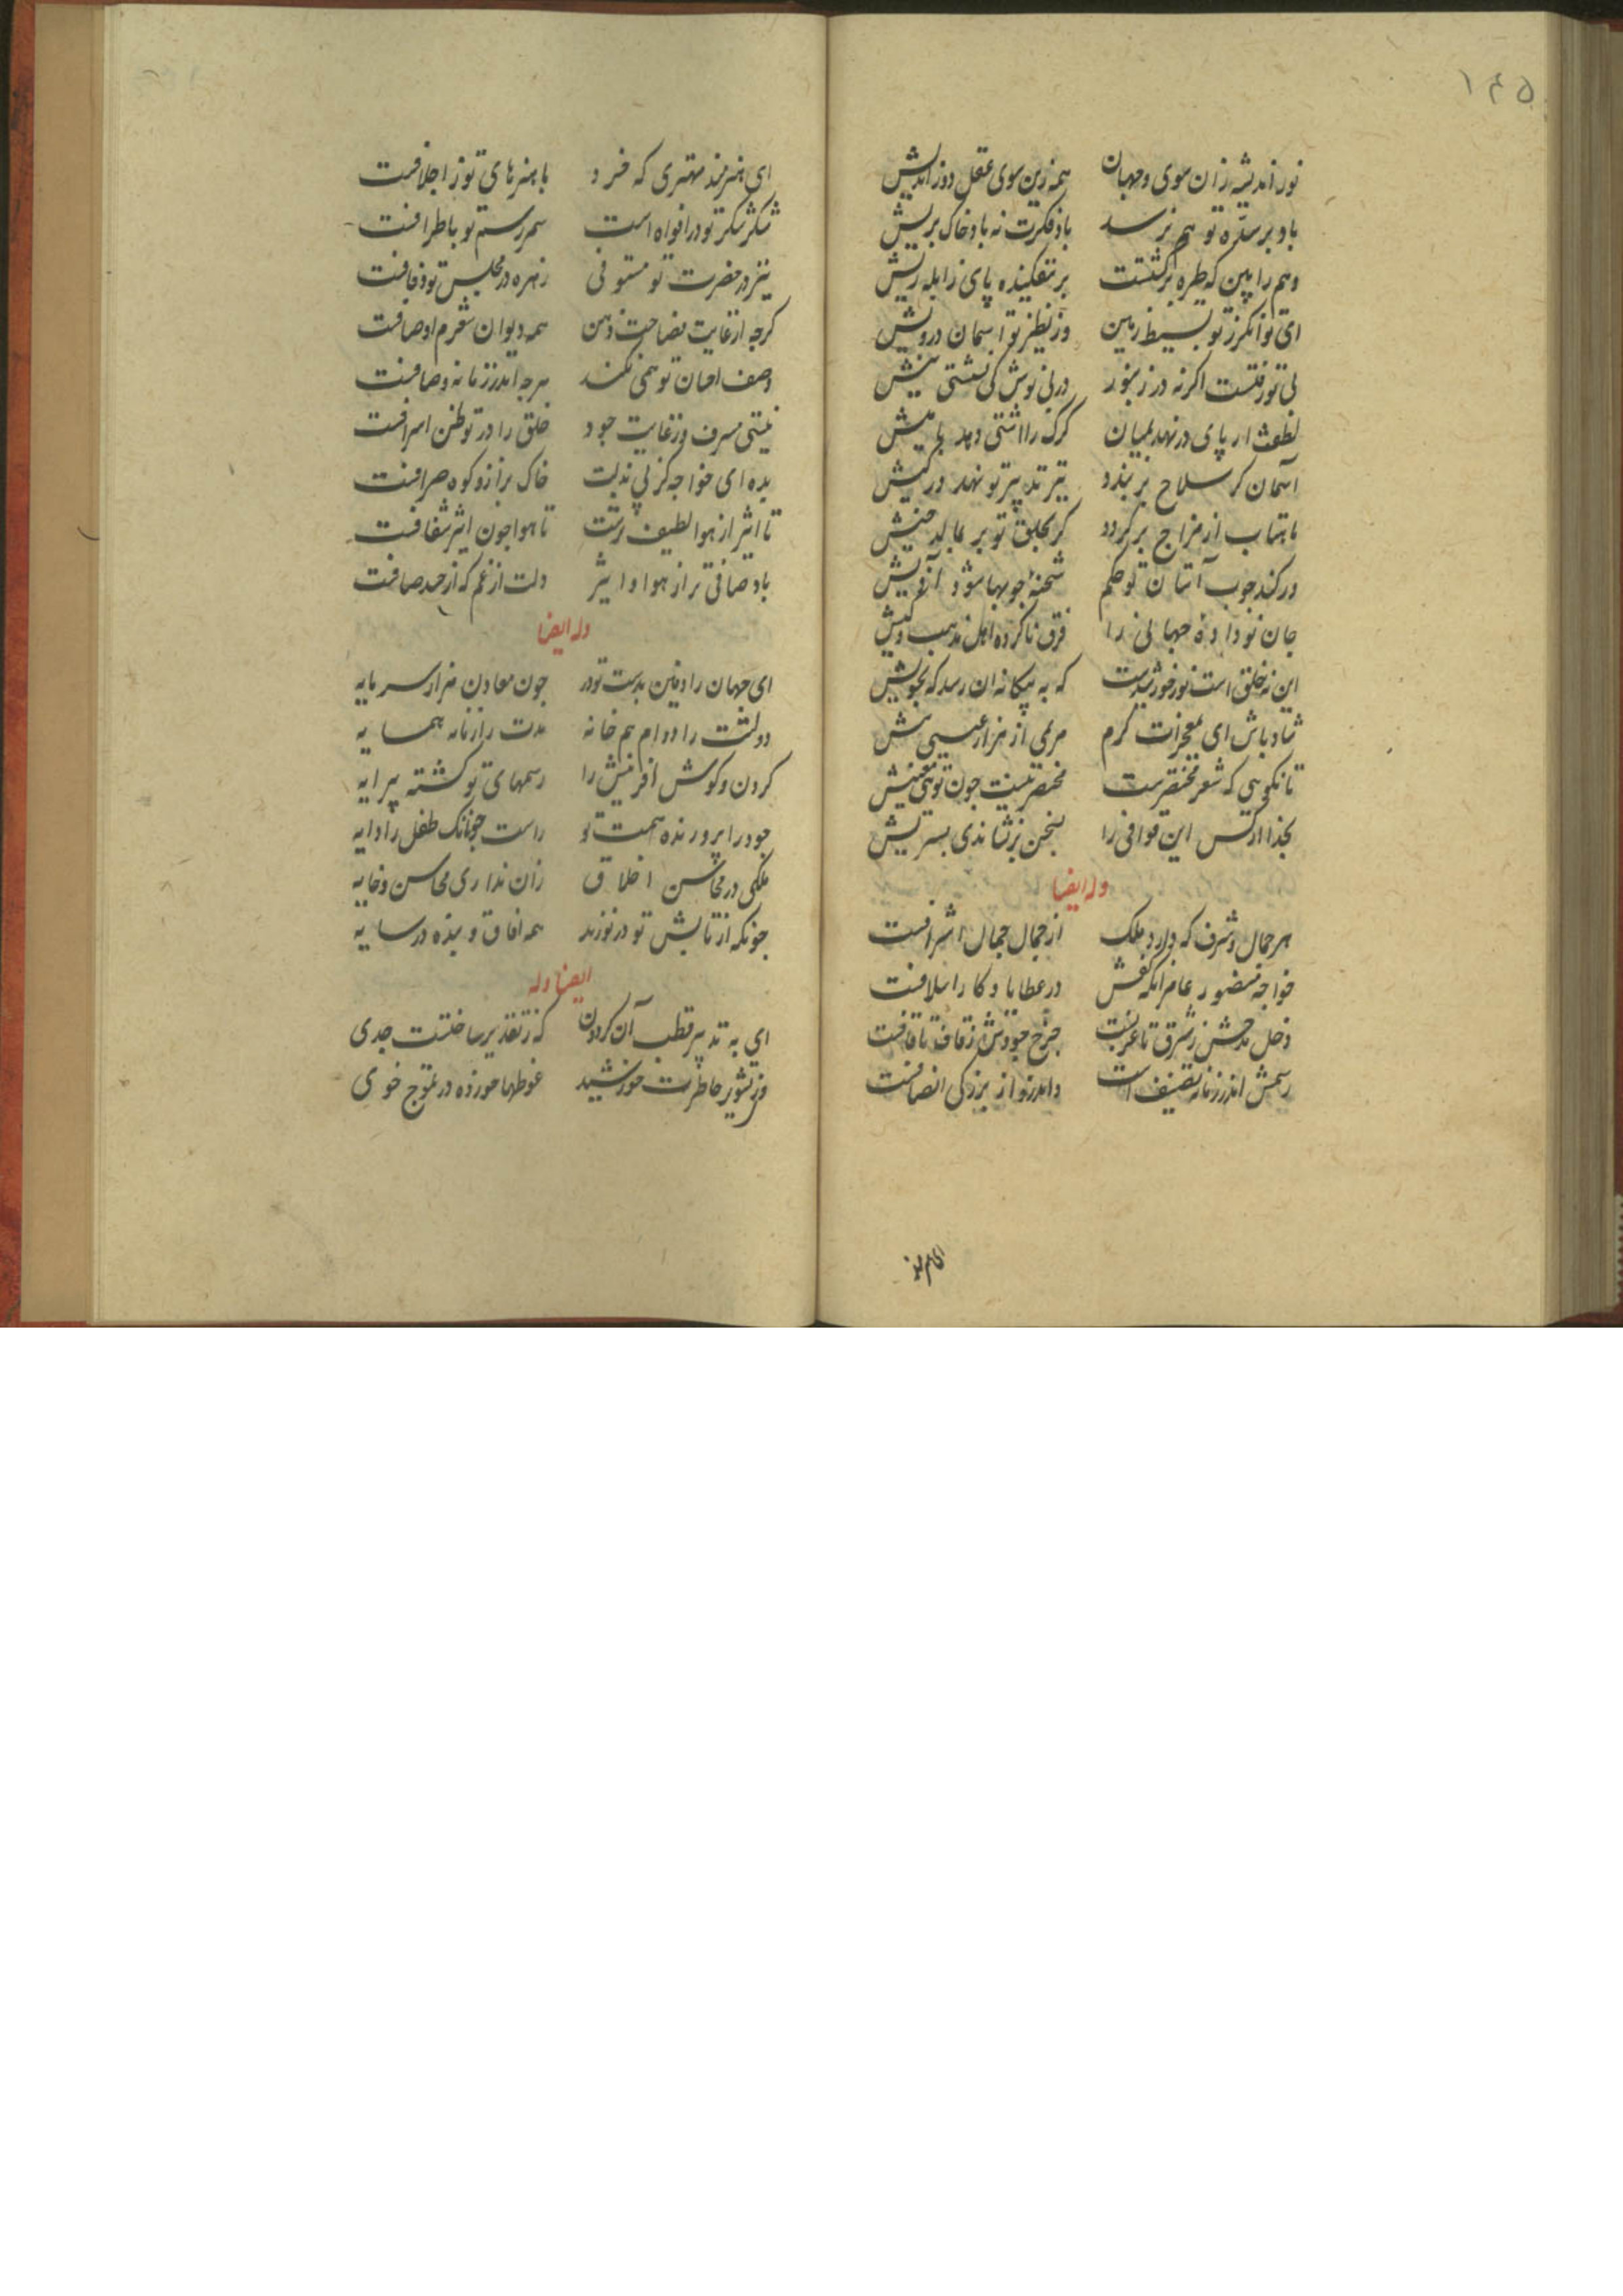 ۱۴۵
نور اندیشه زان سوی وجهان همه زین سوی عقل دور اندیش
باد بر سدّه تو هم نرسد باد فکرت نه باد خاک پریش
وهم را بین که طره برگشتست بر نفکینده پای زابله ریش
ای توانکر ز تو بسیط زمین وز نظیر تو اسمان درویش
بی تو رفتست اکرنه در زنبور در پی نوش کی نشستی نیش
لطفت ار پای در نهد بمیان کرک را اشتی دهد با میش
آسمان کر سلاح بر بندد تیر تدبیر تو نهد در کیش
ماهتاب از مزاج بر کردد کر بخلق تو بر بمالد خیش
ور کند چوب آستان تو حکم شحنهٔ چوبها شود آدیش
جان نو داده جهانی را فرق ناکرده اهل مذهب و کیش
این نه خلق است نور خورشیدست که به بیکانه ان رسد که بخویش
شاد باش ای بمعجزات کرم مریمی از هزار عیسی بیش
تا نکویی که شعر مختصرست مختصر نیست چون تویی معنیش
بخدا ارکس این قوافی را بسخن برنشاندی بسریش
وله ایضا
هر جمال و شرف که دارد ملک از جمال جمال اشرافست
خواجه منصور عامر انکه کفش در عطایا و کا را سلافست
دخل مدحش ز شرق تا غربست خرج جودش ز قاف تا قافست
رسمش اندر زمانه تصنیف است واندرو از بزرکی انصافست
ای هنرمند
ای هنرمند مهتری که خرد با هنرهای تو ز اجلافست
شکر شکر تو در افواه است سمر رسم تو باطرافست
تیر در حضرت تو مستوفی زهره در مجلس تو دفافست
کرچه از غایت فصاحت ذهن همه دیوان شعرم اوصافست
وصف احسان تو همی نکند هرچه اندر زمانه وصافست
نیستی مسرف و ز غایت جود خلق را در تو ظن اسرافست
بده ای خواجه کز پی بذلت خاک بزاز و کوه صرافست
تا اثیر از هوا لطیف ترست تا هوا چون اثیر شفافست
باد صافی تر از هوا و اثیر دلت از غم که از حسد صافست
وله ایضا
ای جهان را دفین بدست تو در چون معادن هزار سرمایه
دولتت را دوام هم خانه مدت را زمانه همسایه
کردن و کوش افرینش را رسمهای تو کشته پیرایه
جود را پرورنده همت تو راست چونانک طفل را دایه
ملکی در محاسن اخلاق زان نداری محاسن و خایه
چونکه از تابش تو در نوزند همه افاق و بنده در سایه
ایضا وله
ای به تدبیر قطب آن کردون که ز تقدیر ساختست جدی
وز تشویر خاطرت خورشید غوطها خورده در تموج خوی